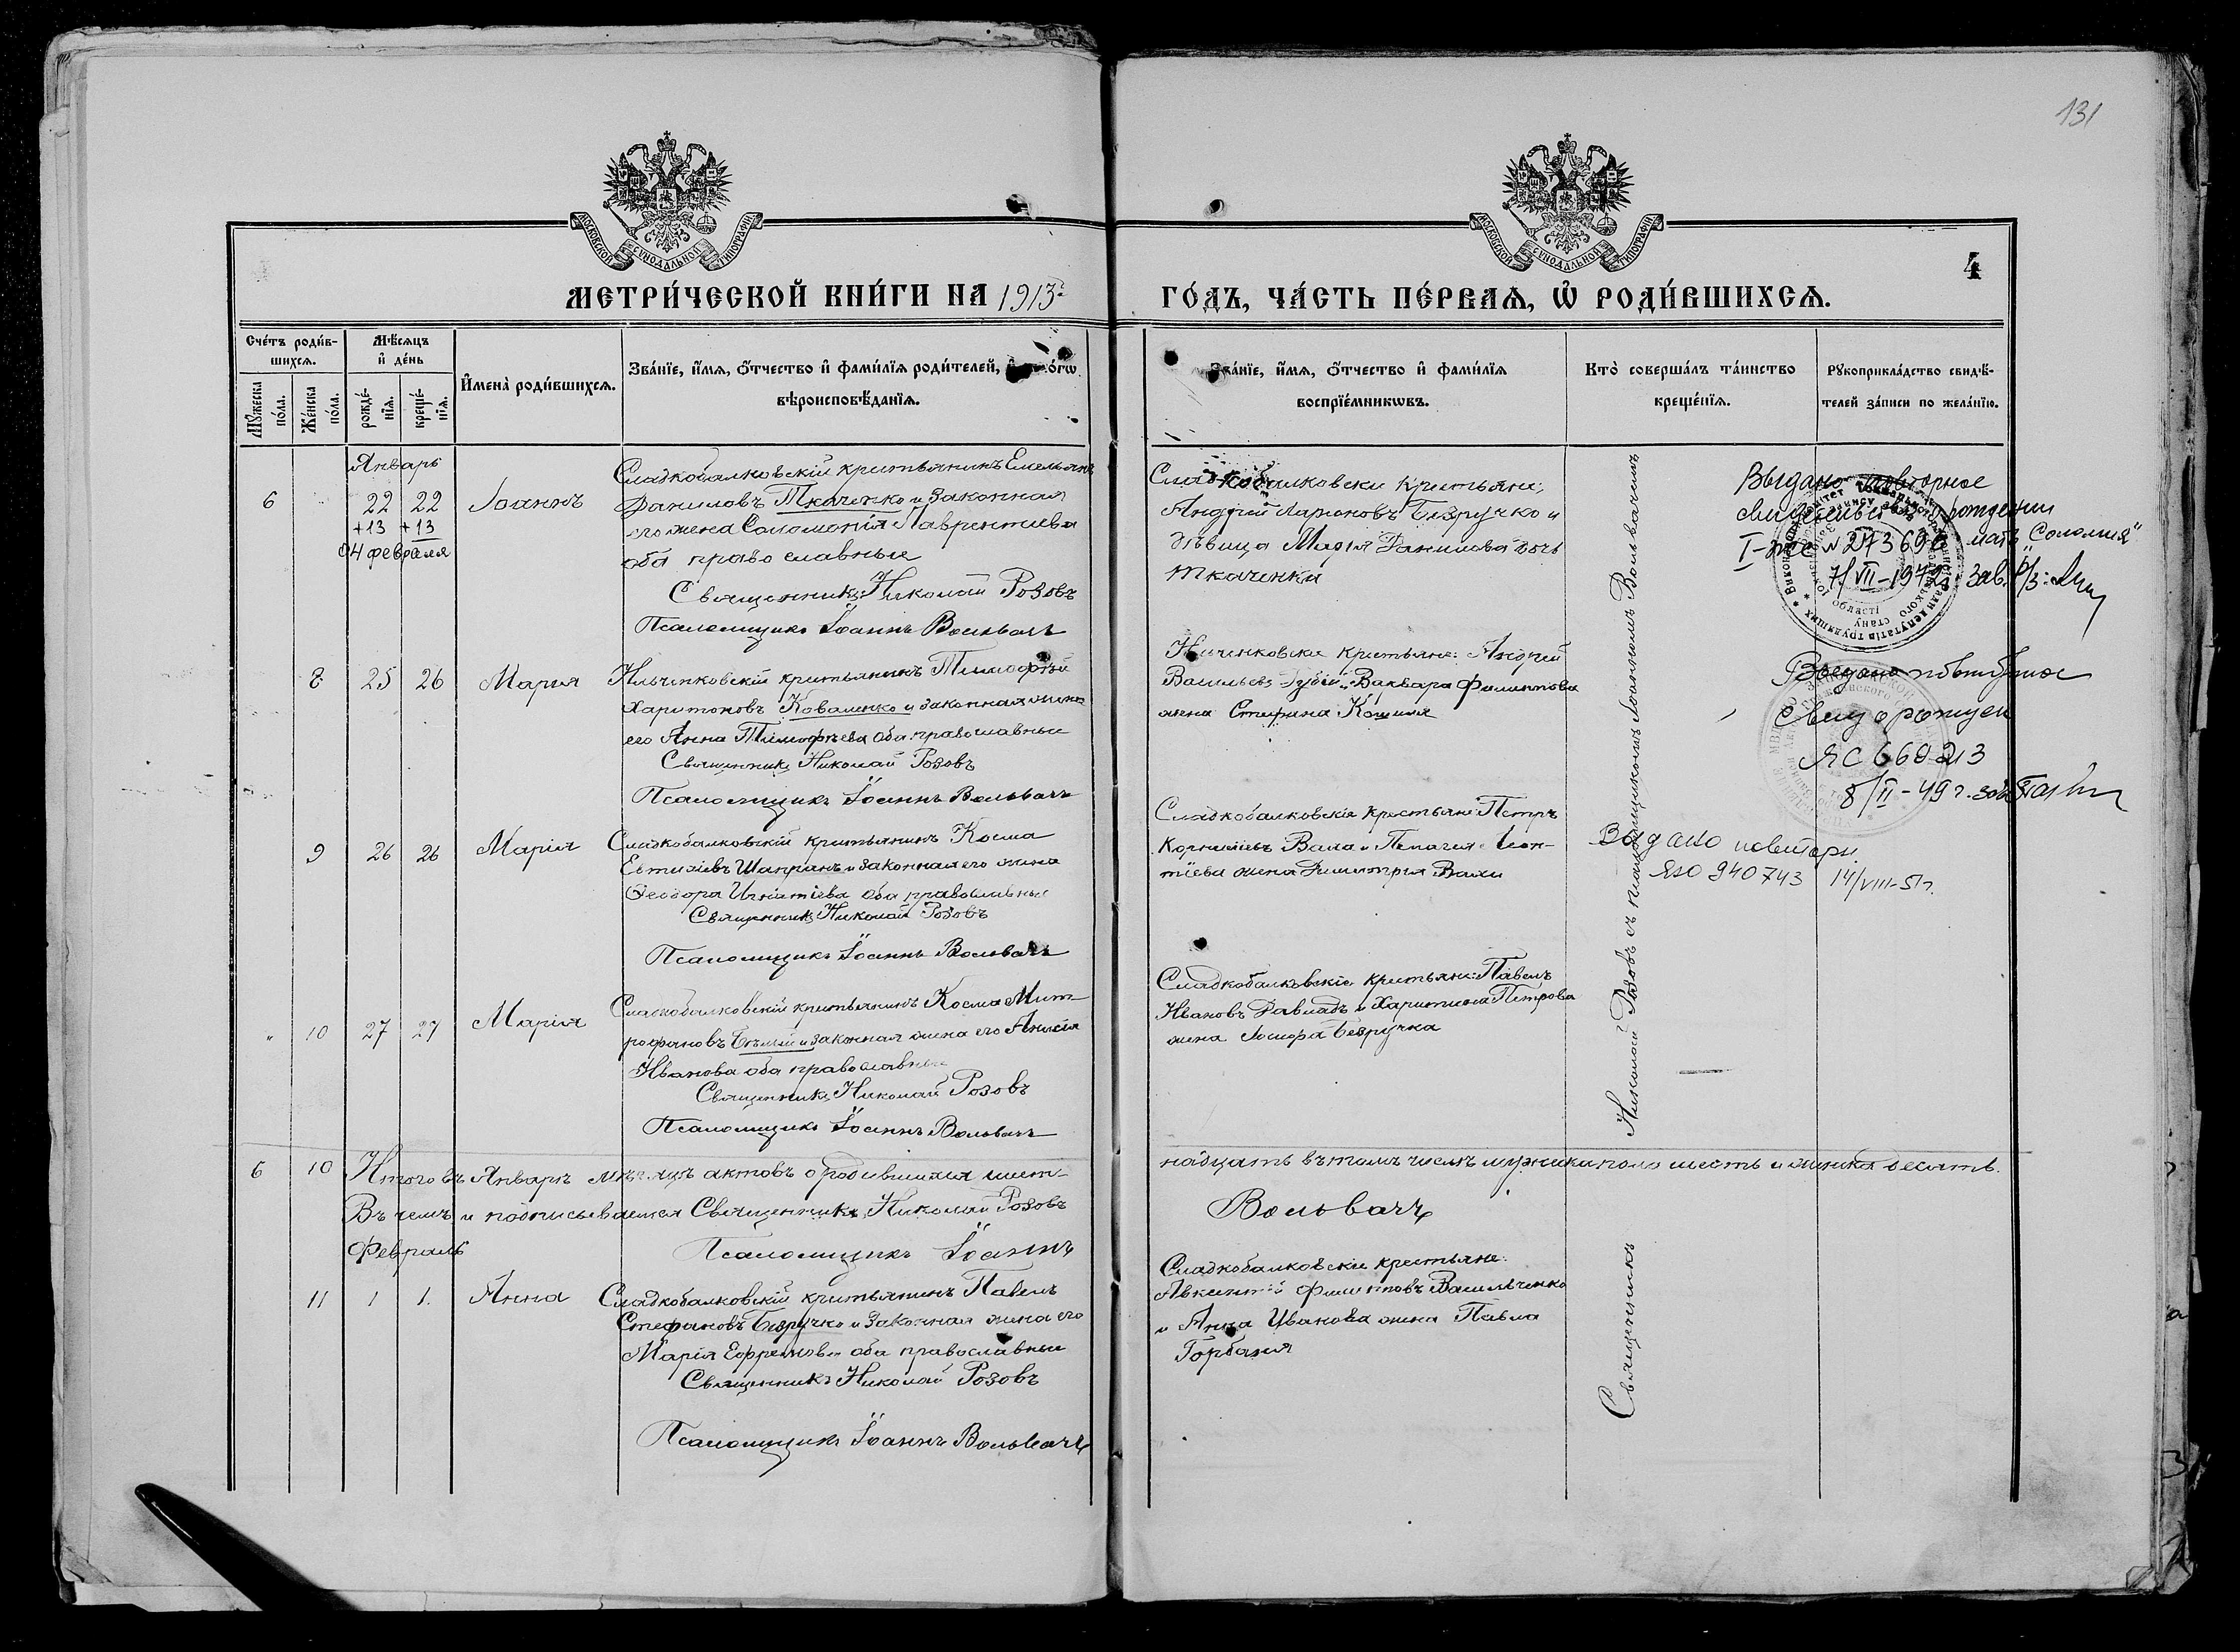 131
МОСКОВСКОЙ СѴНОДАЛЬНОЙ ТИПОГРАФІИ
МОСКОВСКОЙ СѴНОДАЛЬНОЙ ТИПОГРАФІИ
4
МЕТРИ́ЧЕСКОЙ КНИ́ГИ НА 1913 г.
ГО́ДЪ, ЧА́СТЬ ПЕ́РВАѦ, Ѡ҆ РОДИ́ВШИХСѦ.
Сче́тъ роди́в-
шихсѧ.
Мꙋ́жеска по́ла.
Же́нска по́ла.
Мѣ́сѧцъ
и҆ де́нь
рожде́-
нїѧ.
креще́-
нїѧ.
И҆мена̀ роди́вшихсѧ.
Зва́нїе, и҆́мѧ, ѻ҆́тчество и҆ фами́лїѧ роди́телей,
вѣроисповѣ́данїѧ.
Зва́нїе, и҆́мѧ, ѻ҆́тчество и҆ фами́лїѧ
воспрїе́мниковъ.
Кто̀ соверша́лъ та́инство
креще́нїѧ.
Рꙋкоприкла́дство свидѣ́-
телей за́писи по жела́нїю.
Январь
6 22 22 Іоаннъ
+13 +13
04 февраля
Сладкобалковскій крестьянинъ Емельянъ
Даниловъ Ткаченко и законная
его жена Соломонія Лаврентиева
оба православные
Священникъ Николай Розовъ
Псаломщикъ Іоаннъ Вольвачъ
Сладкобалковски крестьяне:
Андрей Ларіоновъ Безручко и
дѣвица Марія Данилова дочь
Ткаченки
Выдано повторное
свидетельст. о рождении
I-ЖС № 273690 мать "Соломия"
7/VII-1972г. Зав.
8 25 26 Мария
Ильченковскій крестьянинъ Тимофѣй
Харитоновъ Коваленко и законная жена
его Анна Тимофѣева оба православные
Священникъ Николай Розовъ
Псаломщикъ Іоаннъ Вольвачъ
крестьяне: Андрей
Васильевъ и Варвара Филиппова
жена Стефана
Выдано повторное
Свид о рожден
ЯС 669213
8/II-49 г.
9 26 26 Марія
Сладкобалковскій крестьянинъ Косма
Евтихіевъ Шапранъ и законная его жена
Ѳеодора Игнатіева оба православные
Священникъ Николай Розовъ
Псаломщикъ Іоаннъ Вольвачъ
Сладкобалковскіе крестьяне: Петръ
Корниліевъ Вала и Пелагія Леон-
тіева жена Димитрія Валы
Выдано повторн.
ЯЮ 940743 14/VIII-51г.
" 10 27 27 Марія
Сладкобалковскій крестьянинъ Косма Мит-
рофановъ Бѣлый и законная жена его Анисія
Иванова оба православные
Священникъ Николай Розовъ
Псаломщикъ Іоаннъ Вольвачъ
Сладкобалковскіе крестьяне: Павелъ
Ивановъ и Харитина Петрова
жена Іосифа Безручка
Николай Розовъ съ псаломщикомъ Іоанномъ Вольвачемъ
6 10 Итого въ Январѣ мѣсяцѣ актовъ о родившихся шест-
надцать въ томъ числѣ мужска пола шесть и женска десять.
Въ чемъ и подписываемся Священникъ Николай Розовъ
Псаломщикъ Іоаннъ
Вольвачъ
Февраль
11 1 1. Анна
Сладкобалковскій крестьянинъ Павелъ
Стефановъ Безручко и законная жена его
Марія Ефремова оба православные
Священникъ Николай Розовъ
Псаломщикъ Іоаннъ Вольвачъ
Сладкобалковскіе крестьяне:
Авксентій Филиповъ Васильченко
и Анна Иванова жена Павла
Горбаня
Священникъ